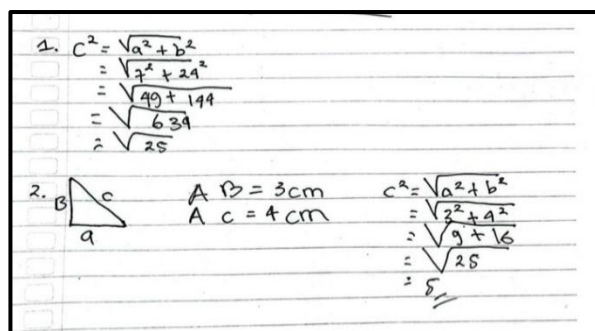 1. C² = √a² + b²
= √7² + 24²
= √49 + 144
= √634
= √25
2. B c a
A B = 3 cm
A C = 4 cm
c² = √a² + b²
= √3² + 4²
= √9 + 16
= √25
= 5